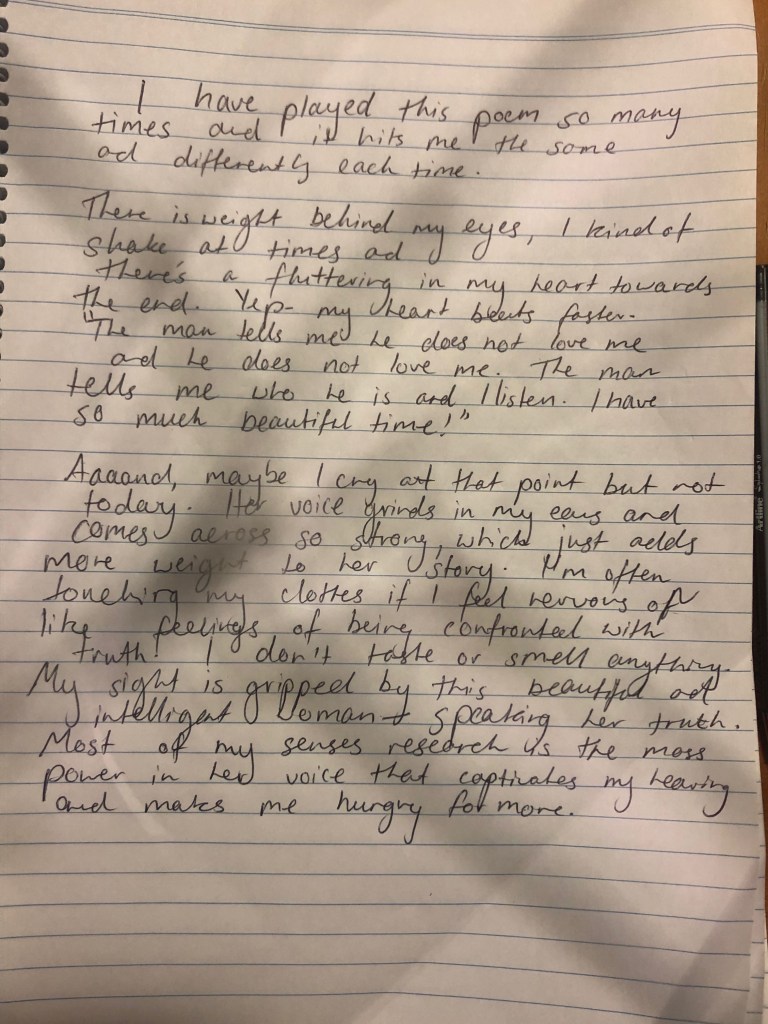 I have played this poem so many
times and it hits me the same
ad differently each time.
There is weight behind my eyes, I kind of
shake at times ad
there's a fluttering in my heart towards
the end. Yep- my heart beats faster.
"The man tells me he does not love me
and he does not love me. The man
tells me who he is and I listen. I have
so much beautiful time!"
Aaaand, maybe I cry at that point but not
today. Her voice grinds in my ears and
comes across so strong, which just adds
more weight to her story. I'm often
touching my clothes if I feel nervous of
like feelings of being confronted with
truth! I don't taste or smell anything.
My sight is gripped by this beautiful ad
intelligent woman speaking her truth.
Most of my senses research is the mass
power in her voice that captivates my hearing
and makes me hungry for more.
Artline